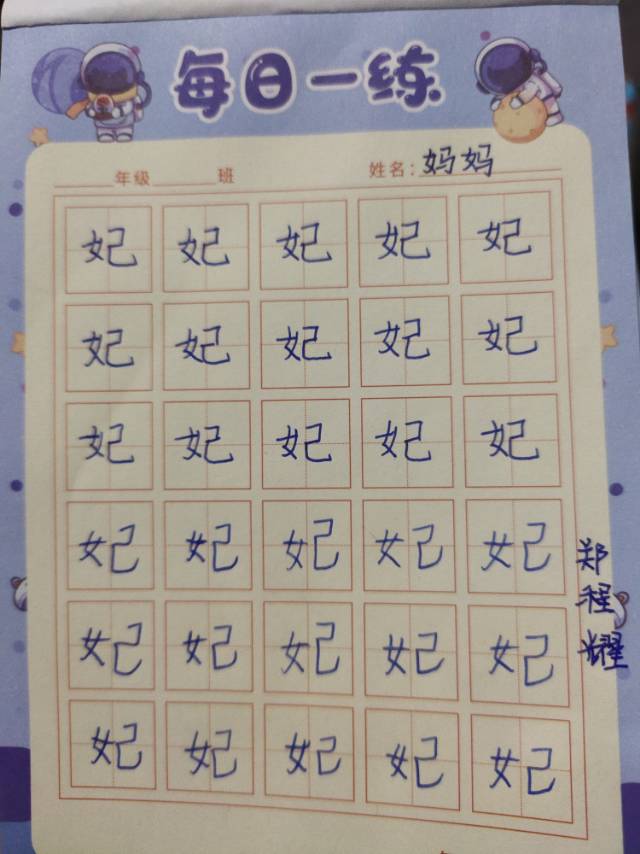 每日一练
____年级____班 姓名:妈妈
妃 妃 妃 妃 妃
妃 妃 妃 妃 妃
妃 妃 妃 妃 妃
妃 妃 妃 妃 妃
妃 妃 妃 妃 妃
妃 妃 妃 妃 妃
郑程耀